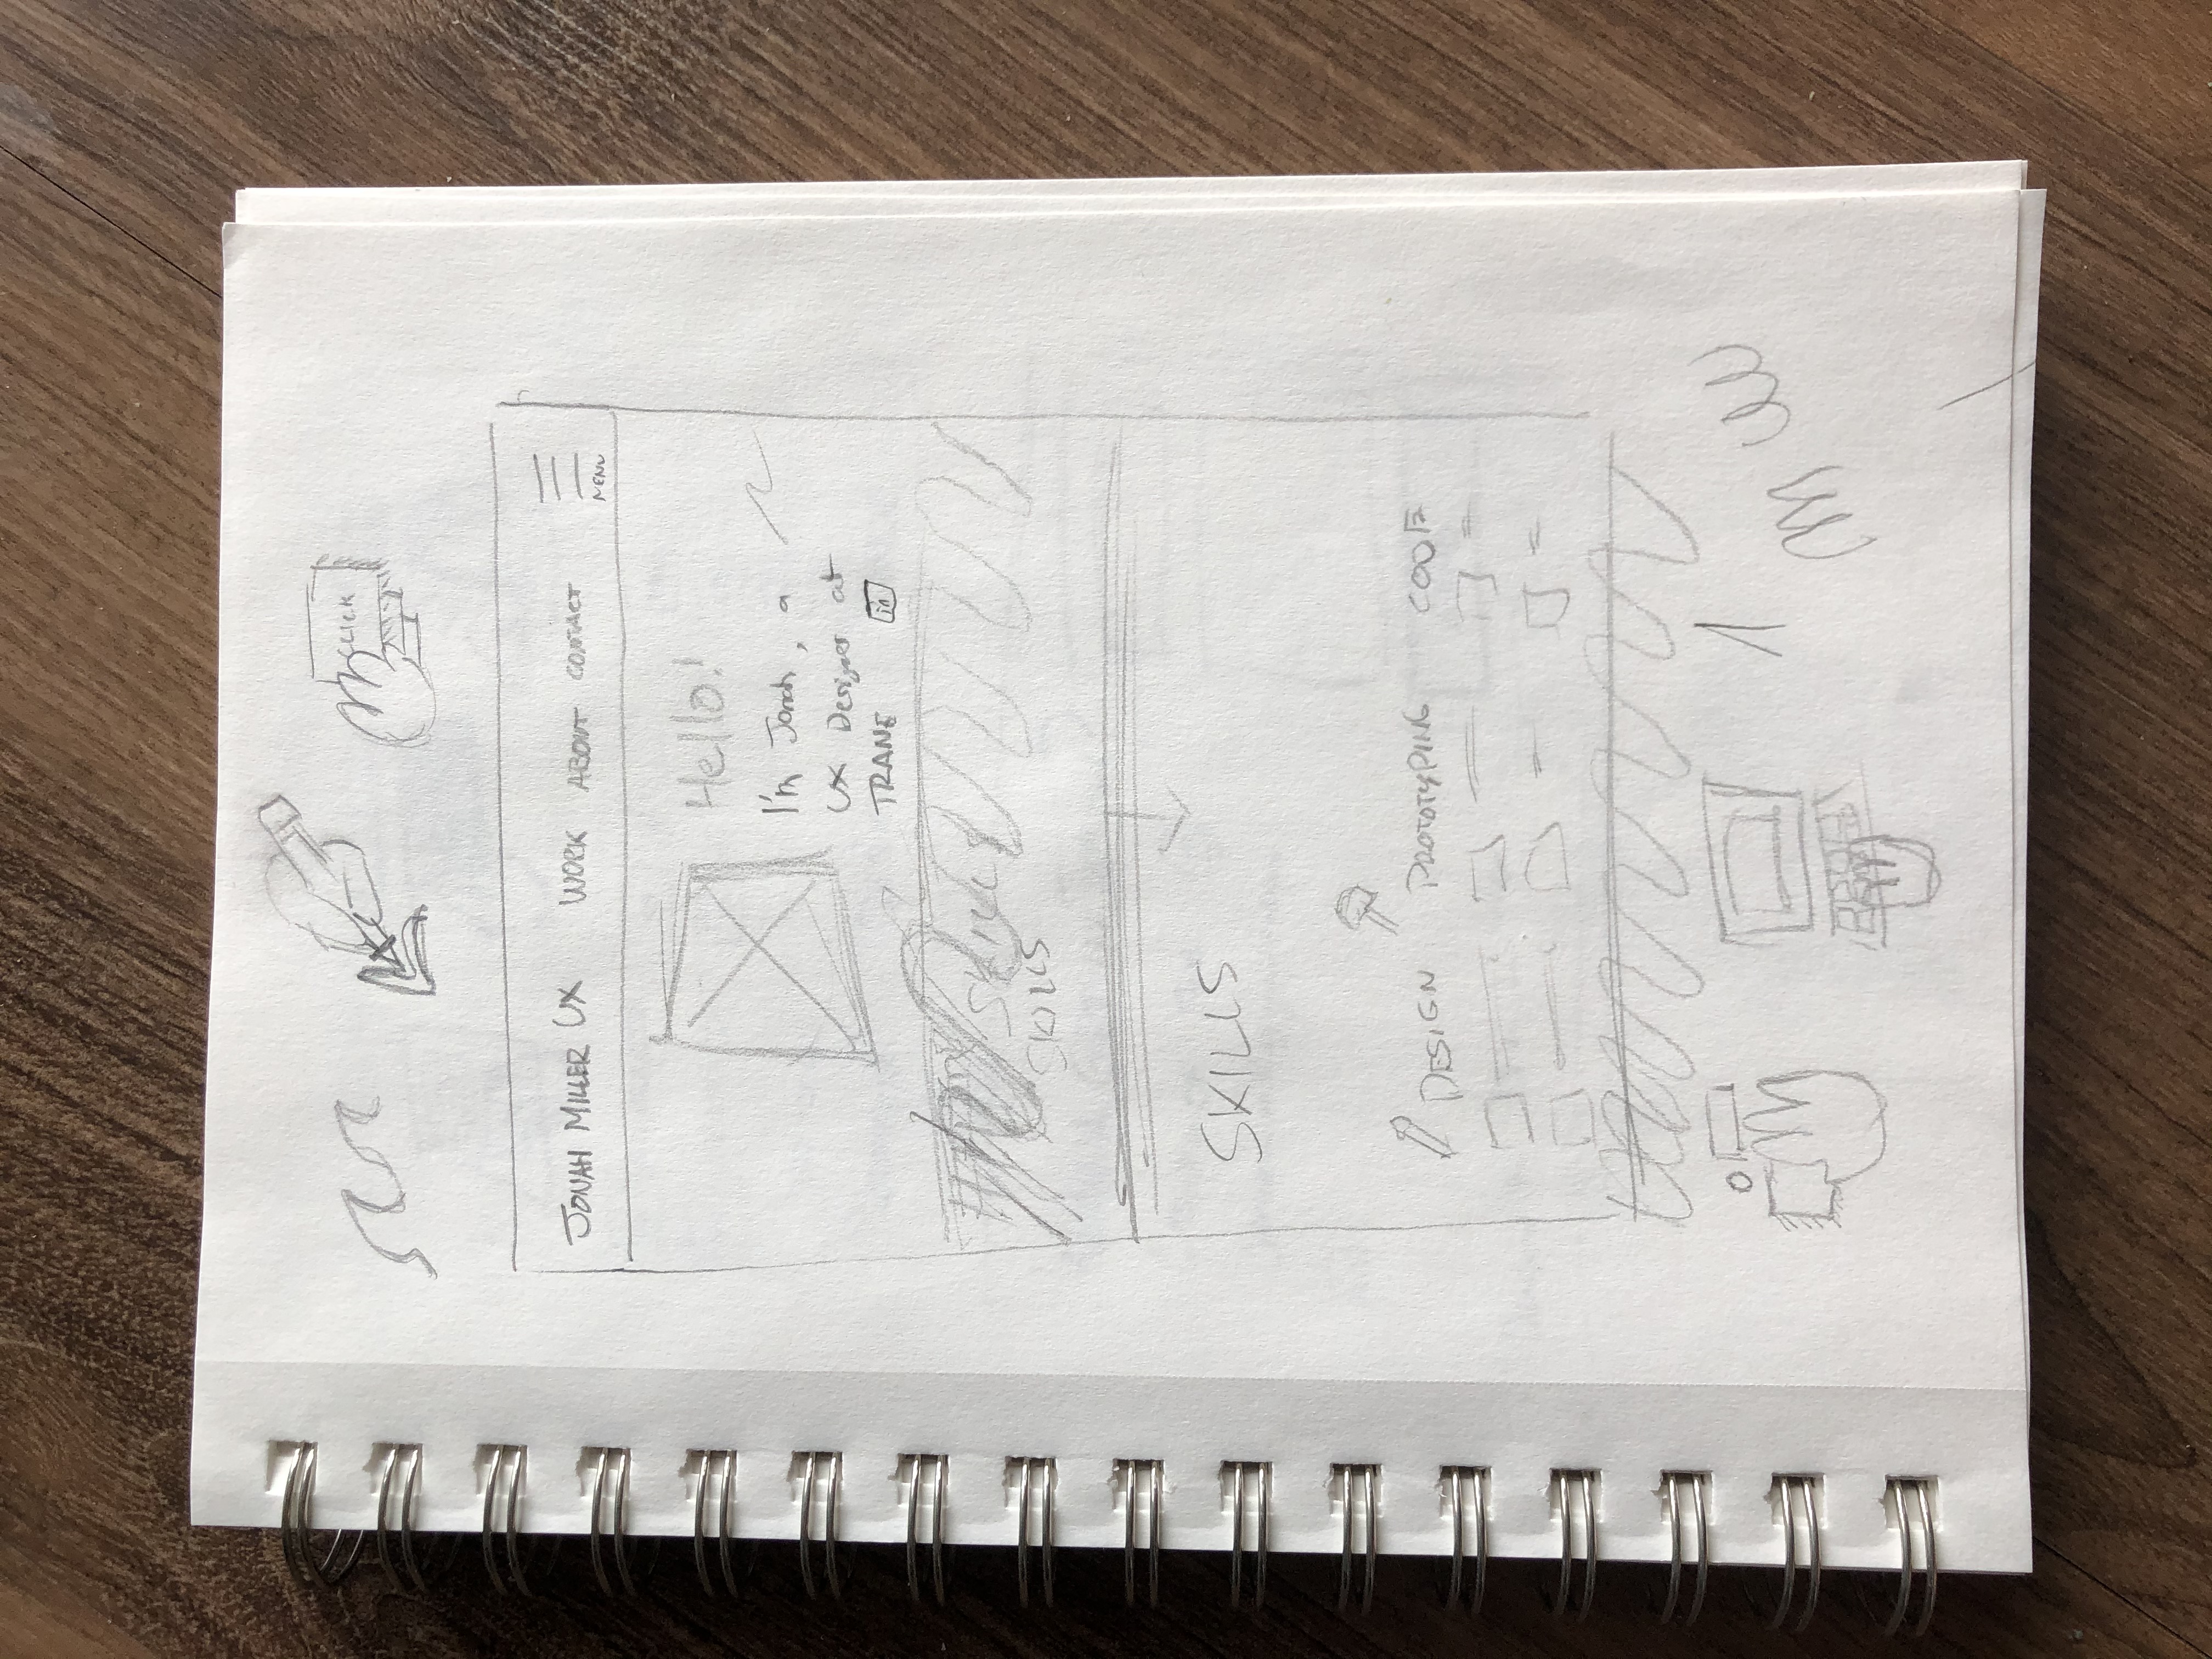 CLICK
JONAH MILLER UX WORK ABOUT CONTACT
MENU
Hello!
I'm Jonah, a
UX Designer at
TRANE in
SKILLS
SKILLS
SKILLS
DESIGN PROTOTYPING CODE